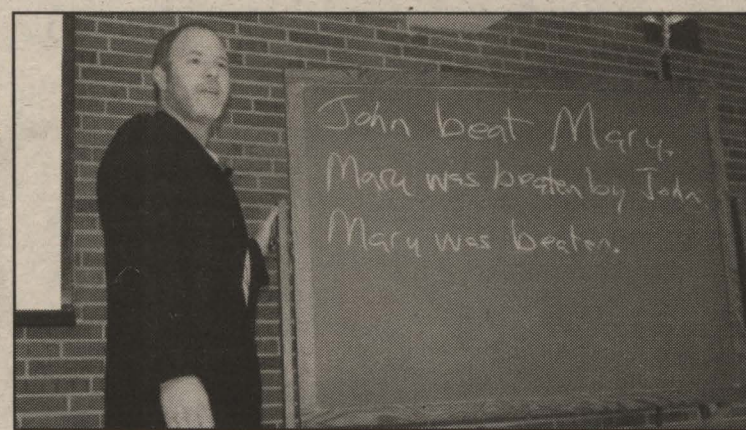 John beat Mary.
Mary was beaten by John.
Mary was beaten.